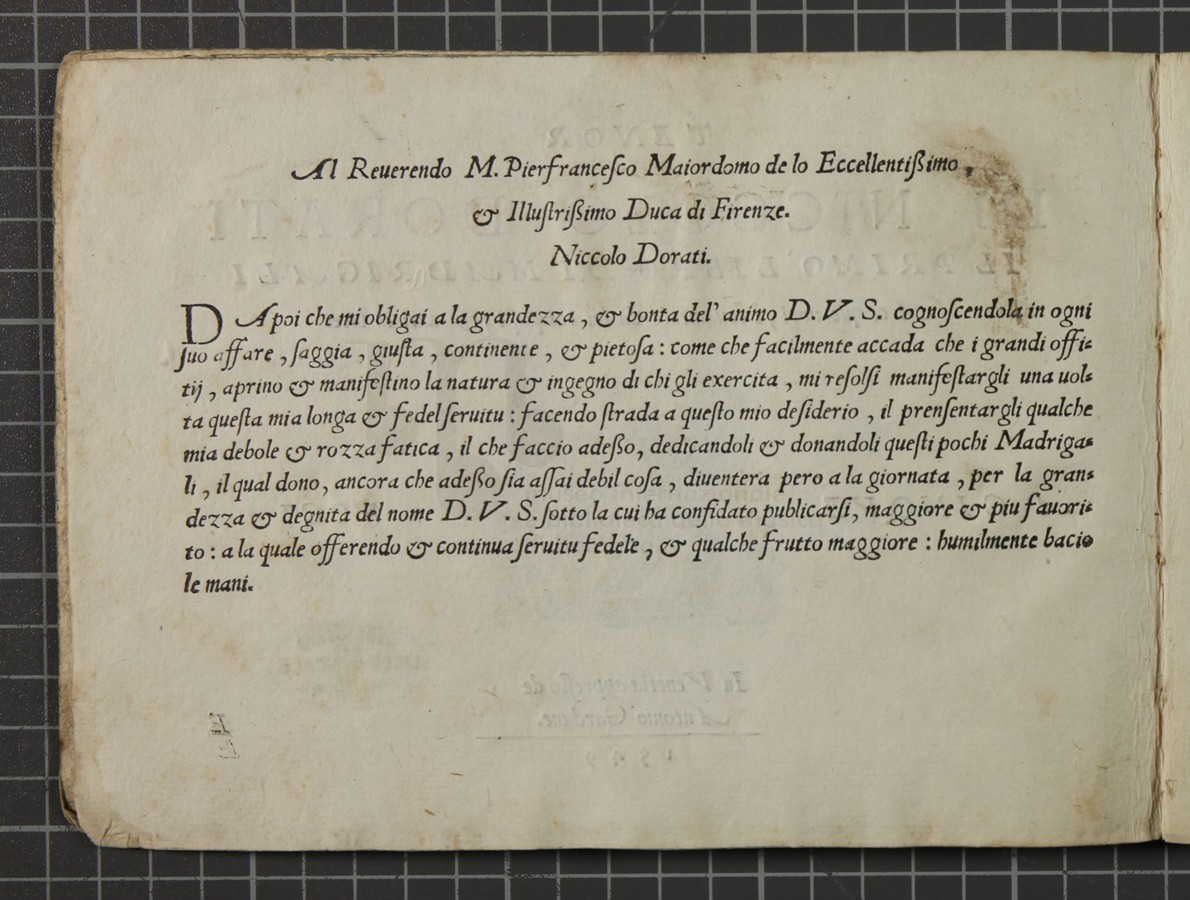 Al Reuerendo M. Pierfrancesco Maiordomo de lo Eccellentißimo,
& Illustrißimo Duca di Firenze.
Niccolo Dorati.
DApoi che mi obligai a la grandezza, & bonta del' animo D. V. S. cognoscendola in ogni
suo affare, saggia, giusta, continente, & pietosa: come che facilmente accada che i grandi offi-
tij, aprino & manifestino la natura & ingegno di chi gli exercita, mi resolsi manifestargli una uol-
ta questa mia longa & fedel seruitu: facendo strada a questo mio desiderio, il prensentargli qualche
mia debole & rozza fatica, il che faccio adeßo, dedicandoli & donandoli questi pochi Madriga-
li, il qual dono, ancora che adeßo sia assai debil cosa, diuentera pero a la giornata, per la gran-
dezza & degnita del nome D. V. S. sotto la cui ha confidato publicarsi, maggiore & piu fauori-
to: a la quale offerendo & continua seruitu fedele, & qualche frutto maggiore: humilmente bacio
le mani.